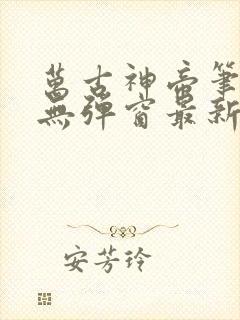 萬古神帝筆
無彈窗最新
安芳玲